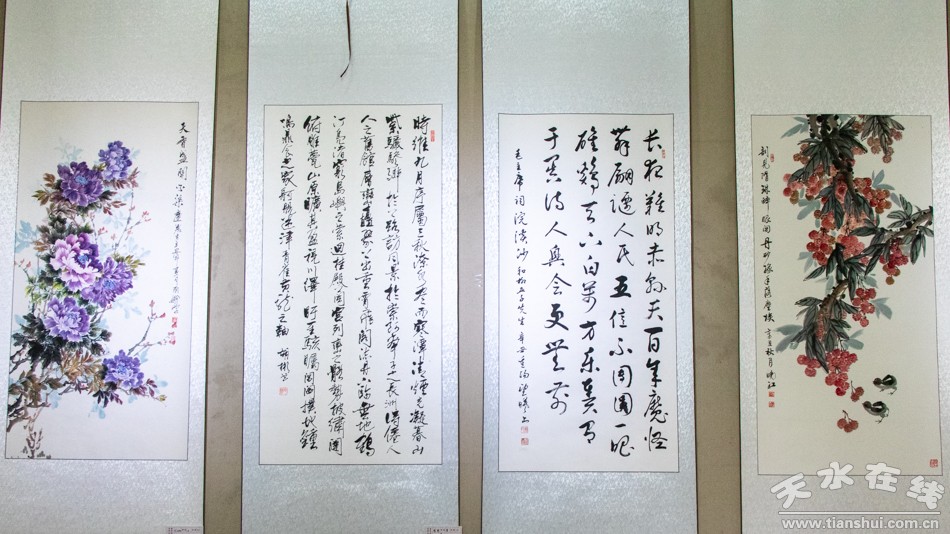 天香盈圃
時維九月序屬三秋潦水盡而寒潭清煙光凝暮山
紫儼驂騑於上路訪風景於崇阿臨帝子之長洲得僊
人之舊館層巒聳翠上出重霄飛閣流丹下臨無地鶴
汀鳧渚窮島嶼之縈迴桂殿蘭宮列岡巒之體勢披繡闥
俯雕甍山原曠其盈視川澤盱其駭矚閭閻撲地鐘
鳴鼎食之家舸艦迷津青雀黃龍之軸
長夜難明赤縣天百年魔怪
舞翩躚人民五億不團圓一唱
雄鷄天下白萬方樂奏有
于闐詩人興會更無前
毛主席詞浣溪沙和柳亞子先生
剖見隋珠醉眼開丹砂緣手落塵埃辛丑秋月曉江
天水在线
www.tianshui.com.cn